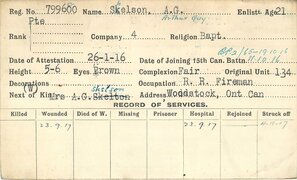 Reg. No. 799600 Name Skelson, A.G. Enlistt. Age 21
Arthur Guy
Rank Pte Company 4 Religion Bapt.
Date of Attestation 26-1-16 Date of Joining 15th Can. Battn
Height 5-6 Eyes Brown Complexion Fair Original Unit 134
Decorations Occupation R. R. Fireman
(W) Skelson
Next of Kin Mrs A.G.Skelton Address Woodstock, Ont Can
RECORD OF SERVICES.
Killed Wounded Died of W. Missing Prisoner Hospital Rejoined Struck off
23.9.17 23.9.17